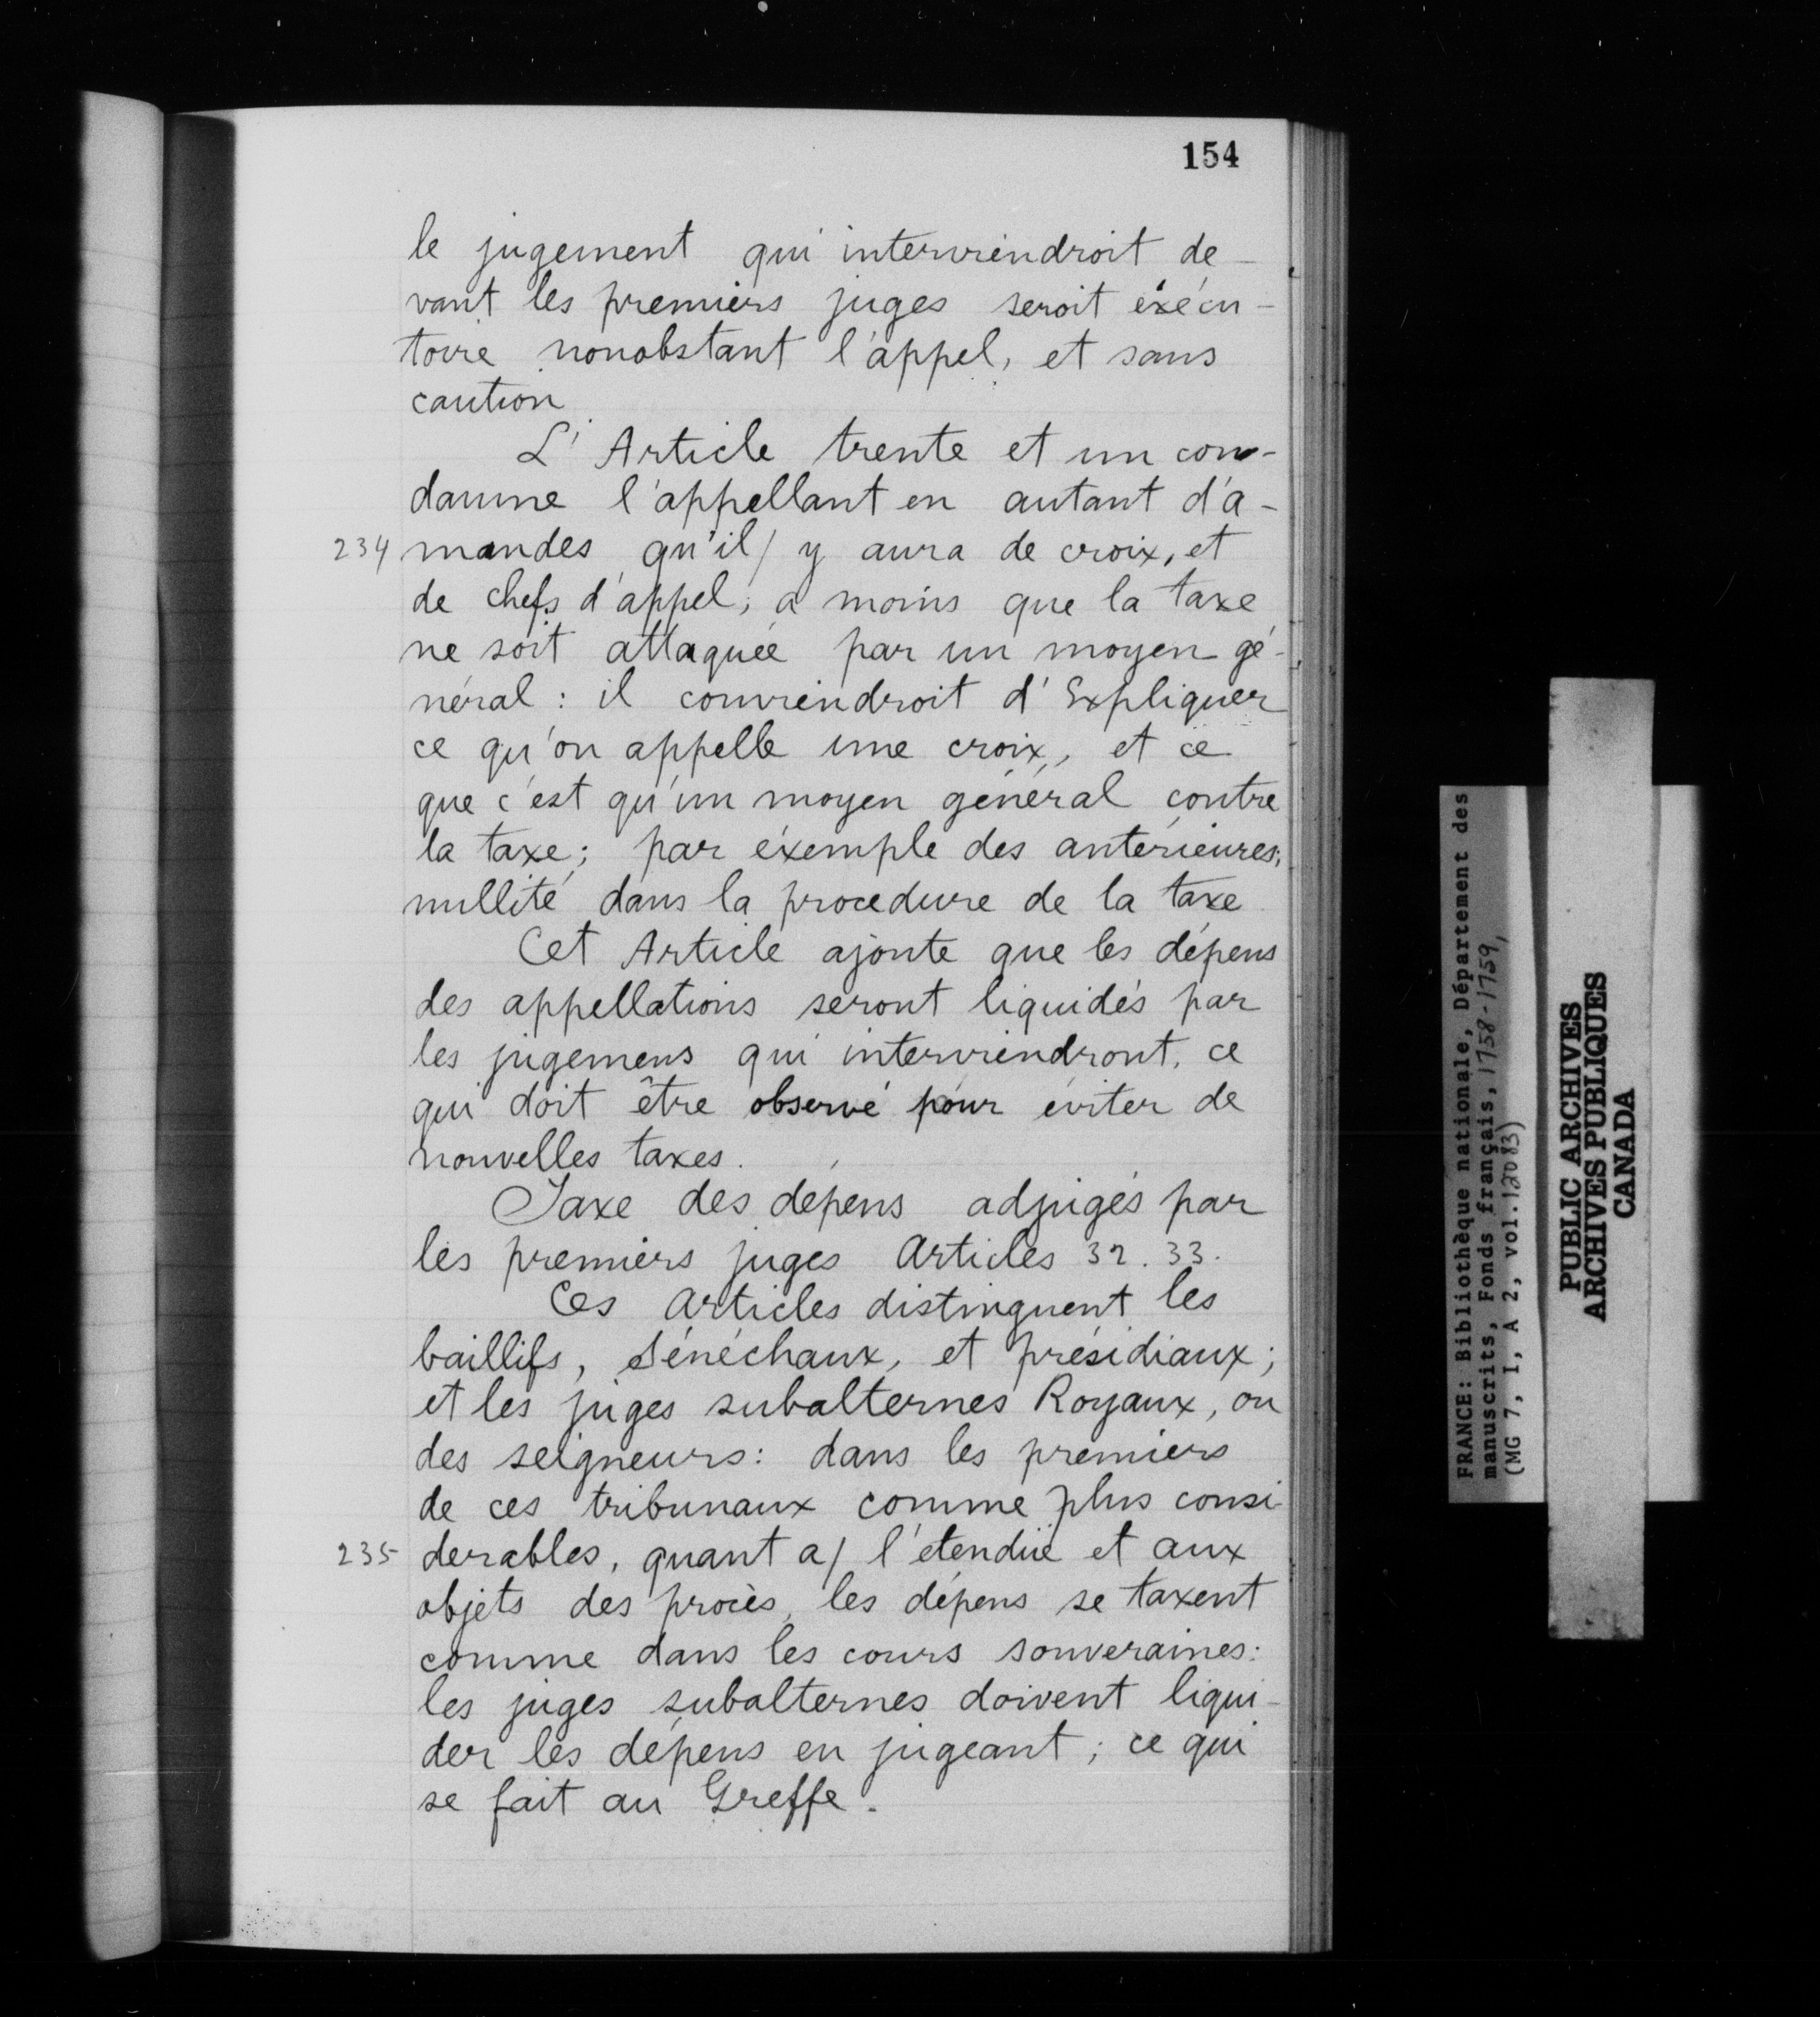 154
le jugement qui interviendroit de-
vant les premiers juges seroit éxécu-
toire nonobstant l'appel, et sans
caution
L'Article trente et un con-
damne l'appellant en autant d'a-
234 mandes qu'il / y aura de croix, et
de chefs d'appel; a moins que la taxe
ne soit attaquée par un moyen gé-
néral : il conviendroit d'Expliquer
ce qu'on appelle une croix, et ce
que c'est qu'un moyen général contre
la taxe; par éxemple des antérieures,
nullité dans la procedure de la taxe
Cet Article ajoute que les dépens
des appellations seront liquidés par
les jugemens qui interviendront, ce
qui doit être observé pour éviter de
nouvelles taxes.
Taxe des dépens adjugés par
les premiers juges Articles 32. 33.
Ces Articles distinguent les
baillifs, Sénéchaux, et présidiaux;
et les juges subalternes Royaux, ou
des seigneurs: dans les premiers
de ces tribunaux comme plus consi-
235 derables, quant a / l'étendüe et aux
objets des procès, les dépens se taxent
comme dans les cours souveraines:
les juges subalternes doivent liqui-
der les dépens en jugeant; ce qui
se fait au Greffe.
FRANCE: Bibliothèque nationale, Département des
manuscrits, Fonds français, 1758-1759,
(MG 7, I, A 2, vol. 12083)
PUBLIC ARCHIVES
ARCHIVES PUBLIQUES
CANADA